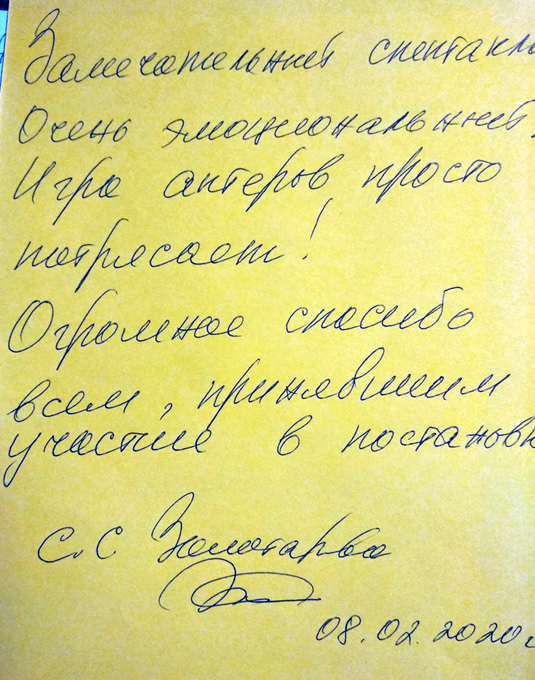 Замечательный спектакл
Очень эмоциональный.
Игра актеров просто
потрясает!
Огромное спасибо
всем, принявшим
участие в постановк
С.С Золотарёва
08.02.2020г